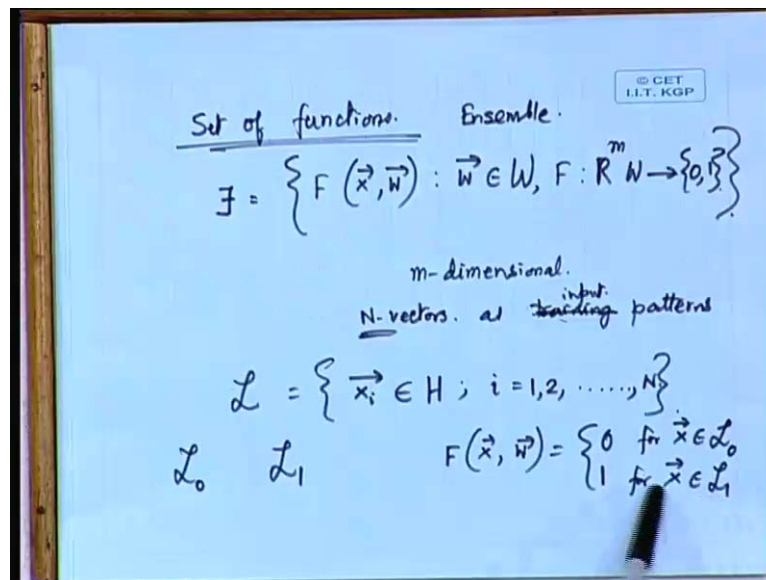 © CET
I.I.T. KGP
Set of functions. Ensemble.
Ƒ = { F (x⃗, w⃗) : w⃗ ∈ W, F : Rᵐ W → {0,1} }
m-dimensional.
N-vectors. as input patterns
ℒ = { x⃗ᵢ ∈ H ; i = 1,2, ......, N }.
ℒ₀ ℒ₁ F(x⃗, w⃗) = { 0 for x⃗ ∈ ℒ₀
1 for x⃗ ∈ ℒ₁